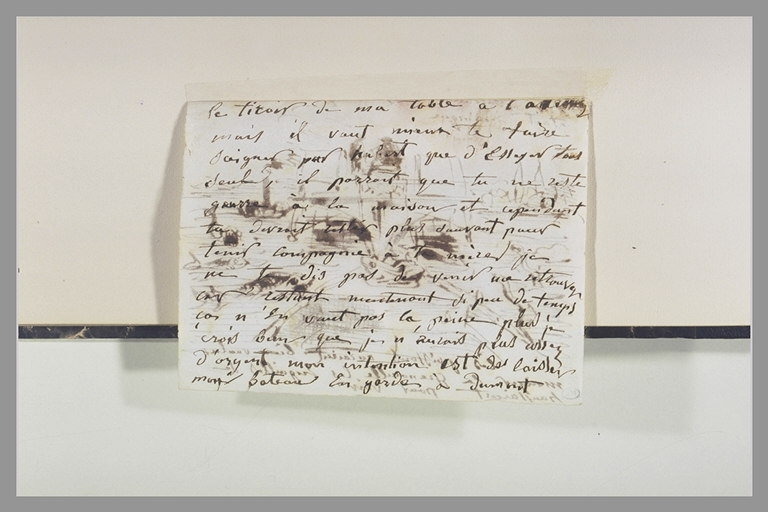 le tiroir de ma table à l'
mais il vaut mieux te faire
soigner par que d'Essayer tous
seule, il parrait que tu ne reste
guerre à la maison et cependant
tu devrait rester plus souvant pour
tenir compagnie à ta mère je
ne te dis pas de venir me retrouver
car restant maintenant si peu de temps
ça n'en vaut pas la peine plus je
crois bien que je n'aurais plus assez
d'argent mon intention est de laisser
mon bateau En garde à